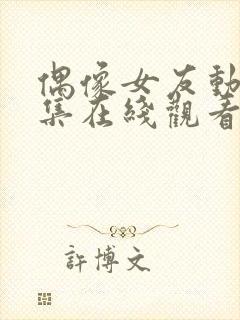 偶像女友動
集在綫觀看
許博文